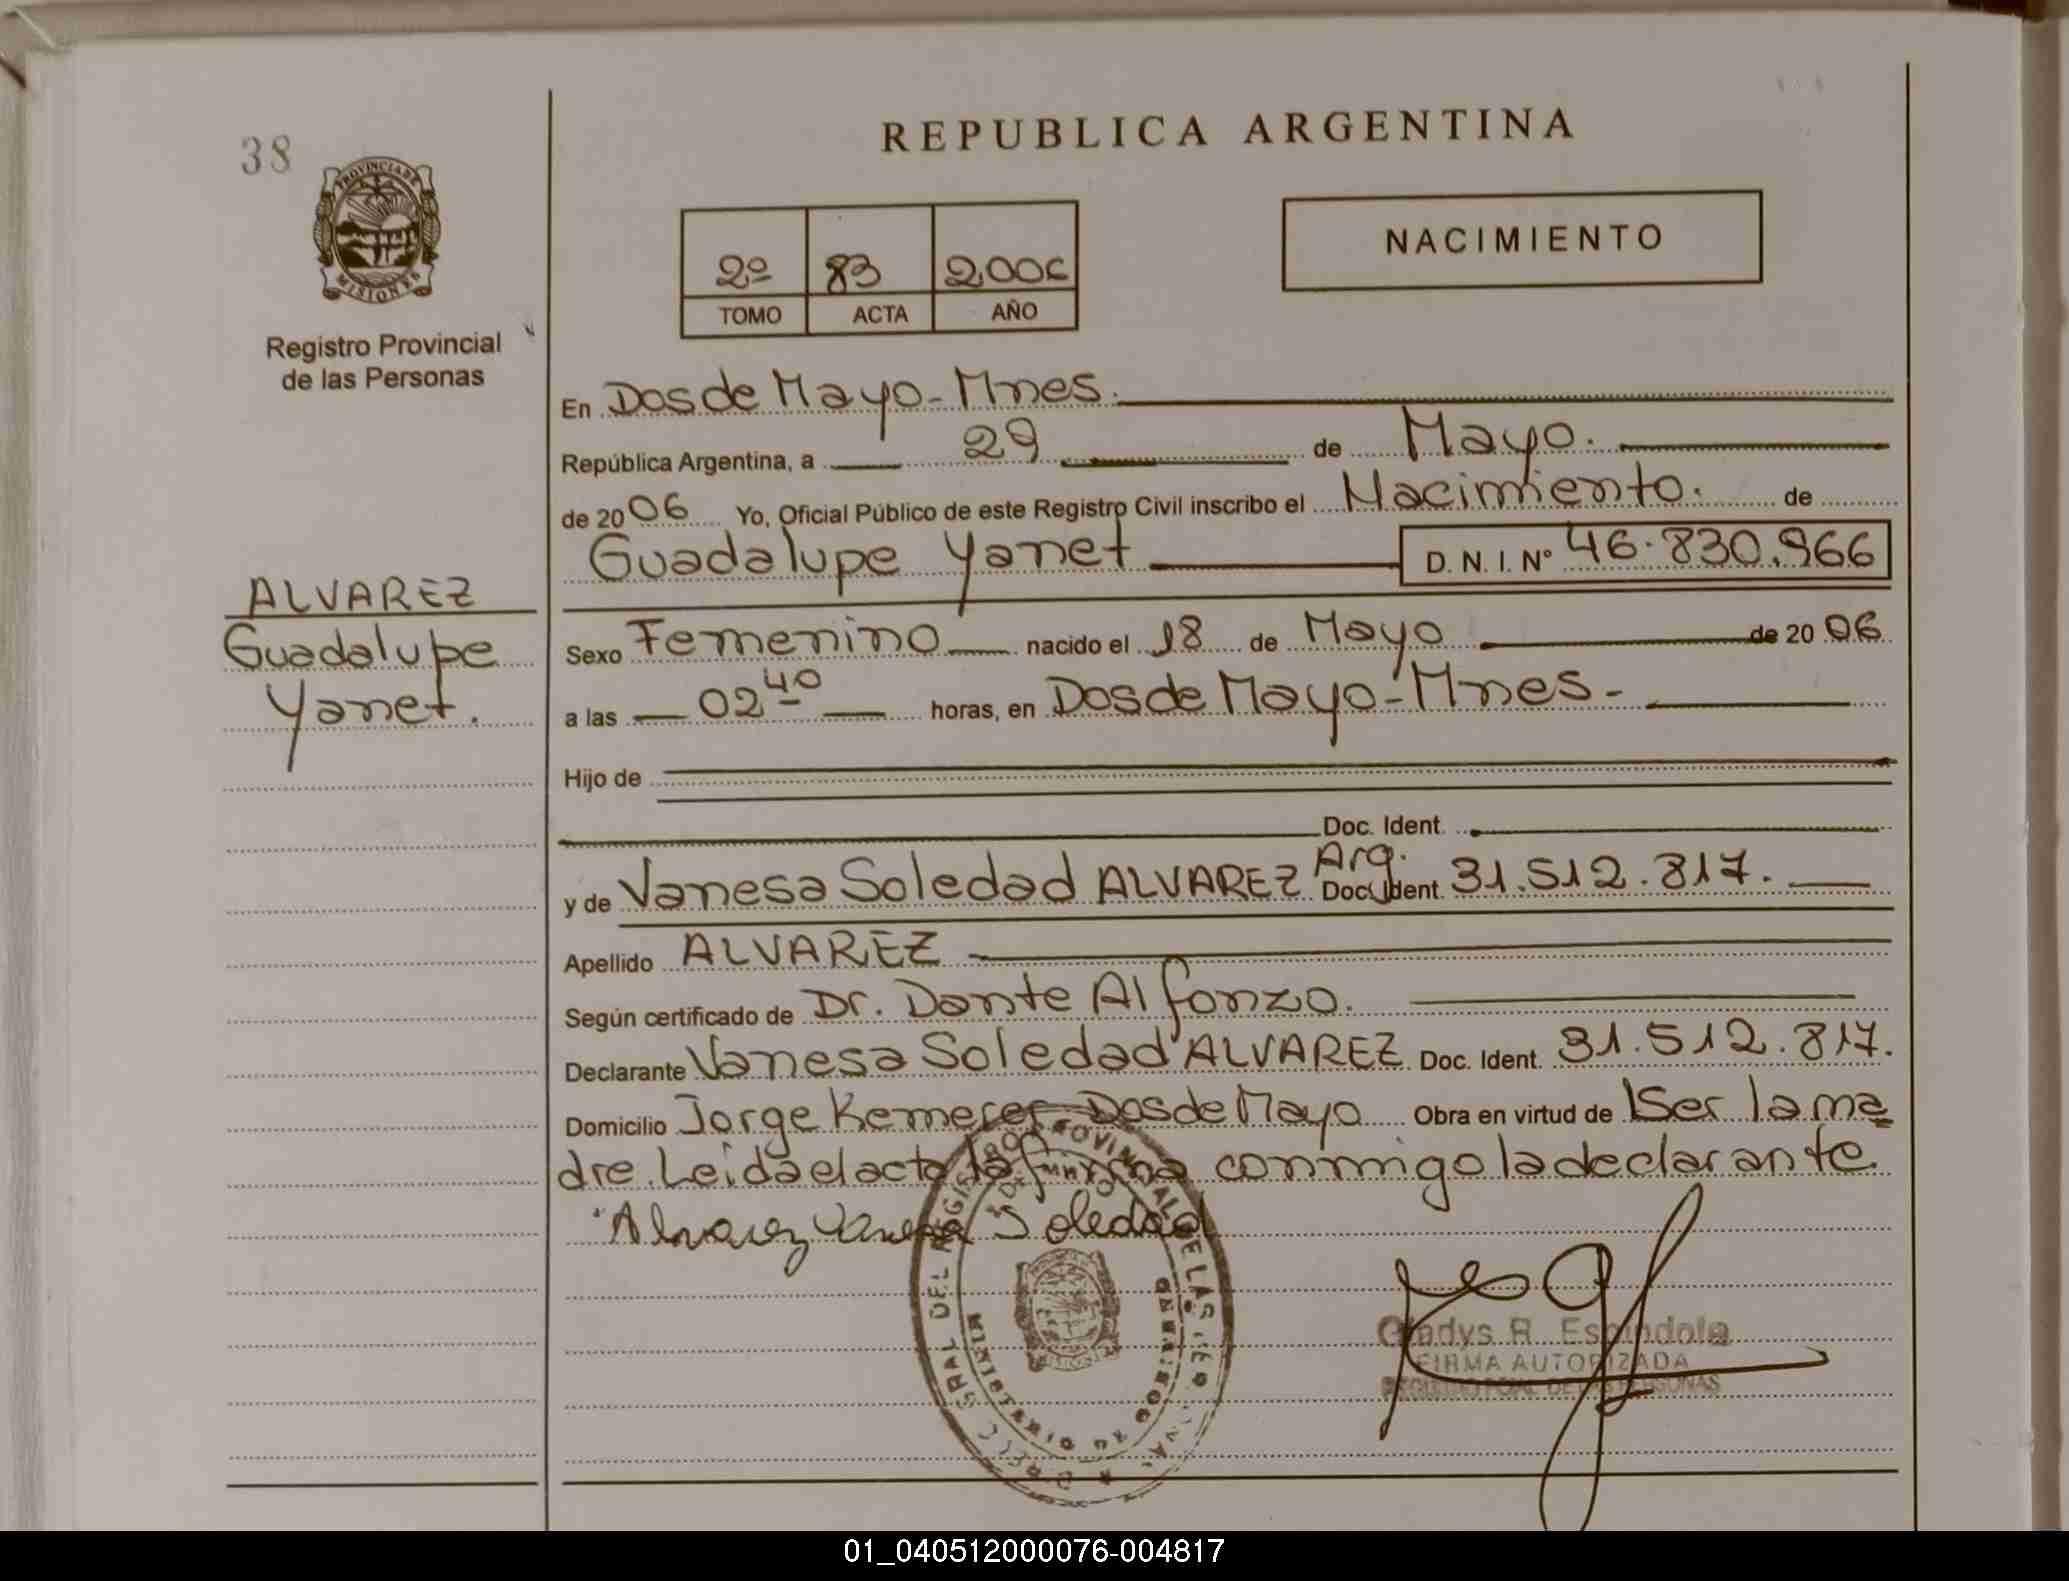 38
REPUBLICA ARGENTINA
PROVINCIA DE
MISIONES
Registro Provincial
de las Personas
2º 83 2.006
TOMO ACTA AÑO
NACIMIENTO
En Dos de Mayo - Mnes.
República Argentina, a 29 de Mayo.
de 2006 Yo, Oficial Público de este Registro Civil inscribo el Nacimiento. de
Guadalupe Yanet D. N. I. Nº 46.830.966
ALVAREZ
Guadalupe
Yanet.
Sexo Femenino nacido el 18 de Mayo de 2006
a las 02 40 horas, en Dos de Mayo - Mnes -
Hijo de
Doc. Ident.
y de Vanesa Soledad ALVAREZ Arg. Doc. Ident. 31.512.817.
Apellido ALVAREZ
Según certificado de Dr. Dante Alfonzo.
Declarante Vanesa Soledad ALVAREZ Doc. Ident. 31.512.817.
Domicilio Jorge Kemerer Dos de Mayo Obra en virtud de Ser la ma
dre. Leida el acta la firma conmigo la declarante
Alvarez Vanesa Soledad
GRAL DEL REGISTRO PROVINCIAL DE LAS
MINISTERIO DE GOBIERNO
Gladys R. Espindola
FIRMA AUTORIZADA
01_040512000076-004817